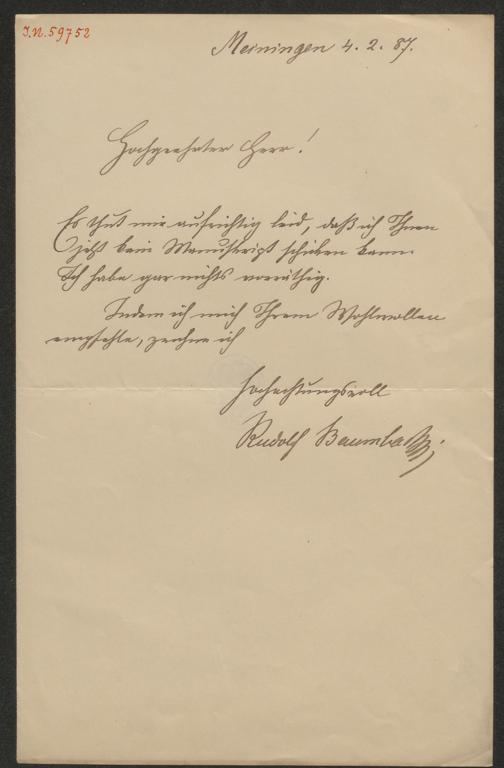 I.N. 59752
Meiningen 4. 2. 87.
Hochgeehrter Herr!
Es thut mir aufrichtig leid, daß ich Ihnen
jetzt kein Manuskript schicken kann.
Ich habe gar nichts vorräthig.
Indem ich mich Ihrem Wohlwollen
empfehle, zeichne ich
hochachtungsvoll
Rudolf Baumbach